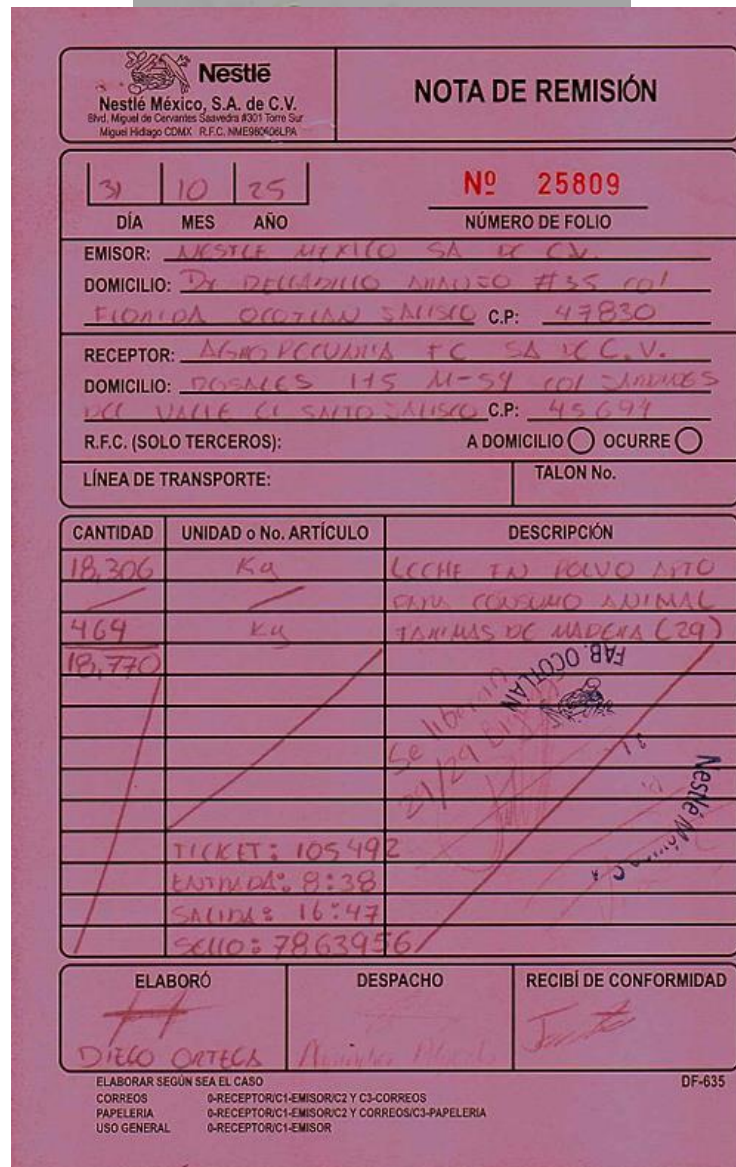 Nestlé
Nestlé México, S.A. de C.V.
Blvd, Miguel de Cervantes Saavedra #301 Torre Sur
Miguel Hidlago CDMX R.F.C. NME980406LPA
NOTA DE REMISIÓN
31 10 25
DÍA MES AÑO
Nº 25809
NÚMERO DE FOLIO
EMISOR: NESTLE MEXICO SA DE CV.
DOMICILIO: Dr DELGADILLO ARAUJO #35 col
FLORIDA OCOTLAN JALISCO C.P: 47830
RECEPTOR: AGROPECUARIA FC SA DE C.V.
DOMICILIO: ROSALES 175 M-54 COL JARDINES
DEL VALLE EL SALTO JALISCO C.P: 45694
R.F.C. (SOLO TERCEROS): A DOMICILIO OCURRE
LÍNEA DE TRANSPORTE: TALON No.
CANTIDAD UNIDAD o No. ARTÍCULO DESCRIPCIÓN
18,306 Kg LECHE EN POLVO APTO
PARA CONSUMO ANIMAL
464 Kg TARIMAS DE MADERA (29)
18,770
FAB. OCOTLÁN
Se liberan
29/29
Nestlé México
TICKET: 105492
ENTRADA: 8:38
SALIDA: 16:47
SELLO: 7863956
ELABORÓ DESPACHO RECIBÍ DE CONFORMIDAD
DIEGO ORTEGA
ELABORAR SEGÚN SEA EL CASO DF-635
CORREOS 0-RECEPTOR/C1-EMISOR/C2 Y C3-CORREOS
PAPELERIA 0-RECEPTOR/C1-EMISOR/C2 Y CORREOS/C3-PAPELERIA
USO GENERAL 0-RECEPTOR/C1-EMISOR